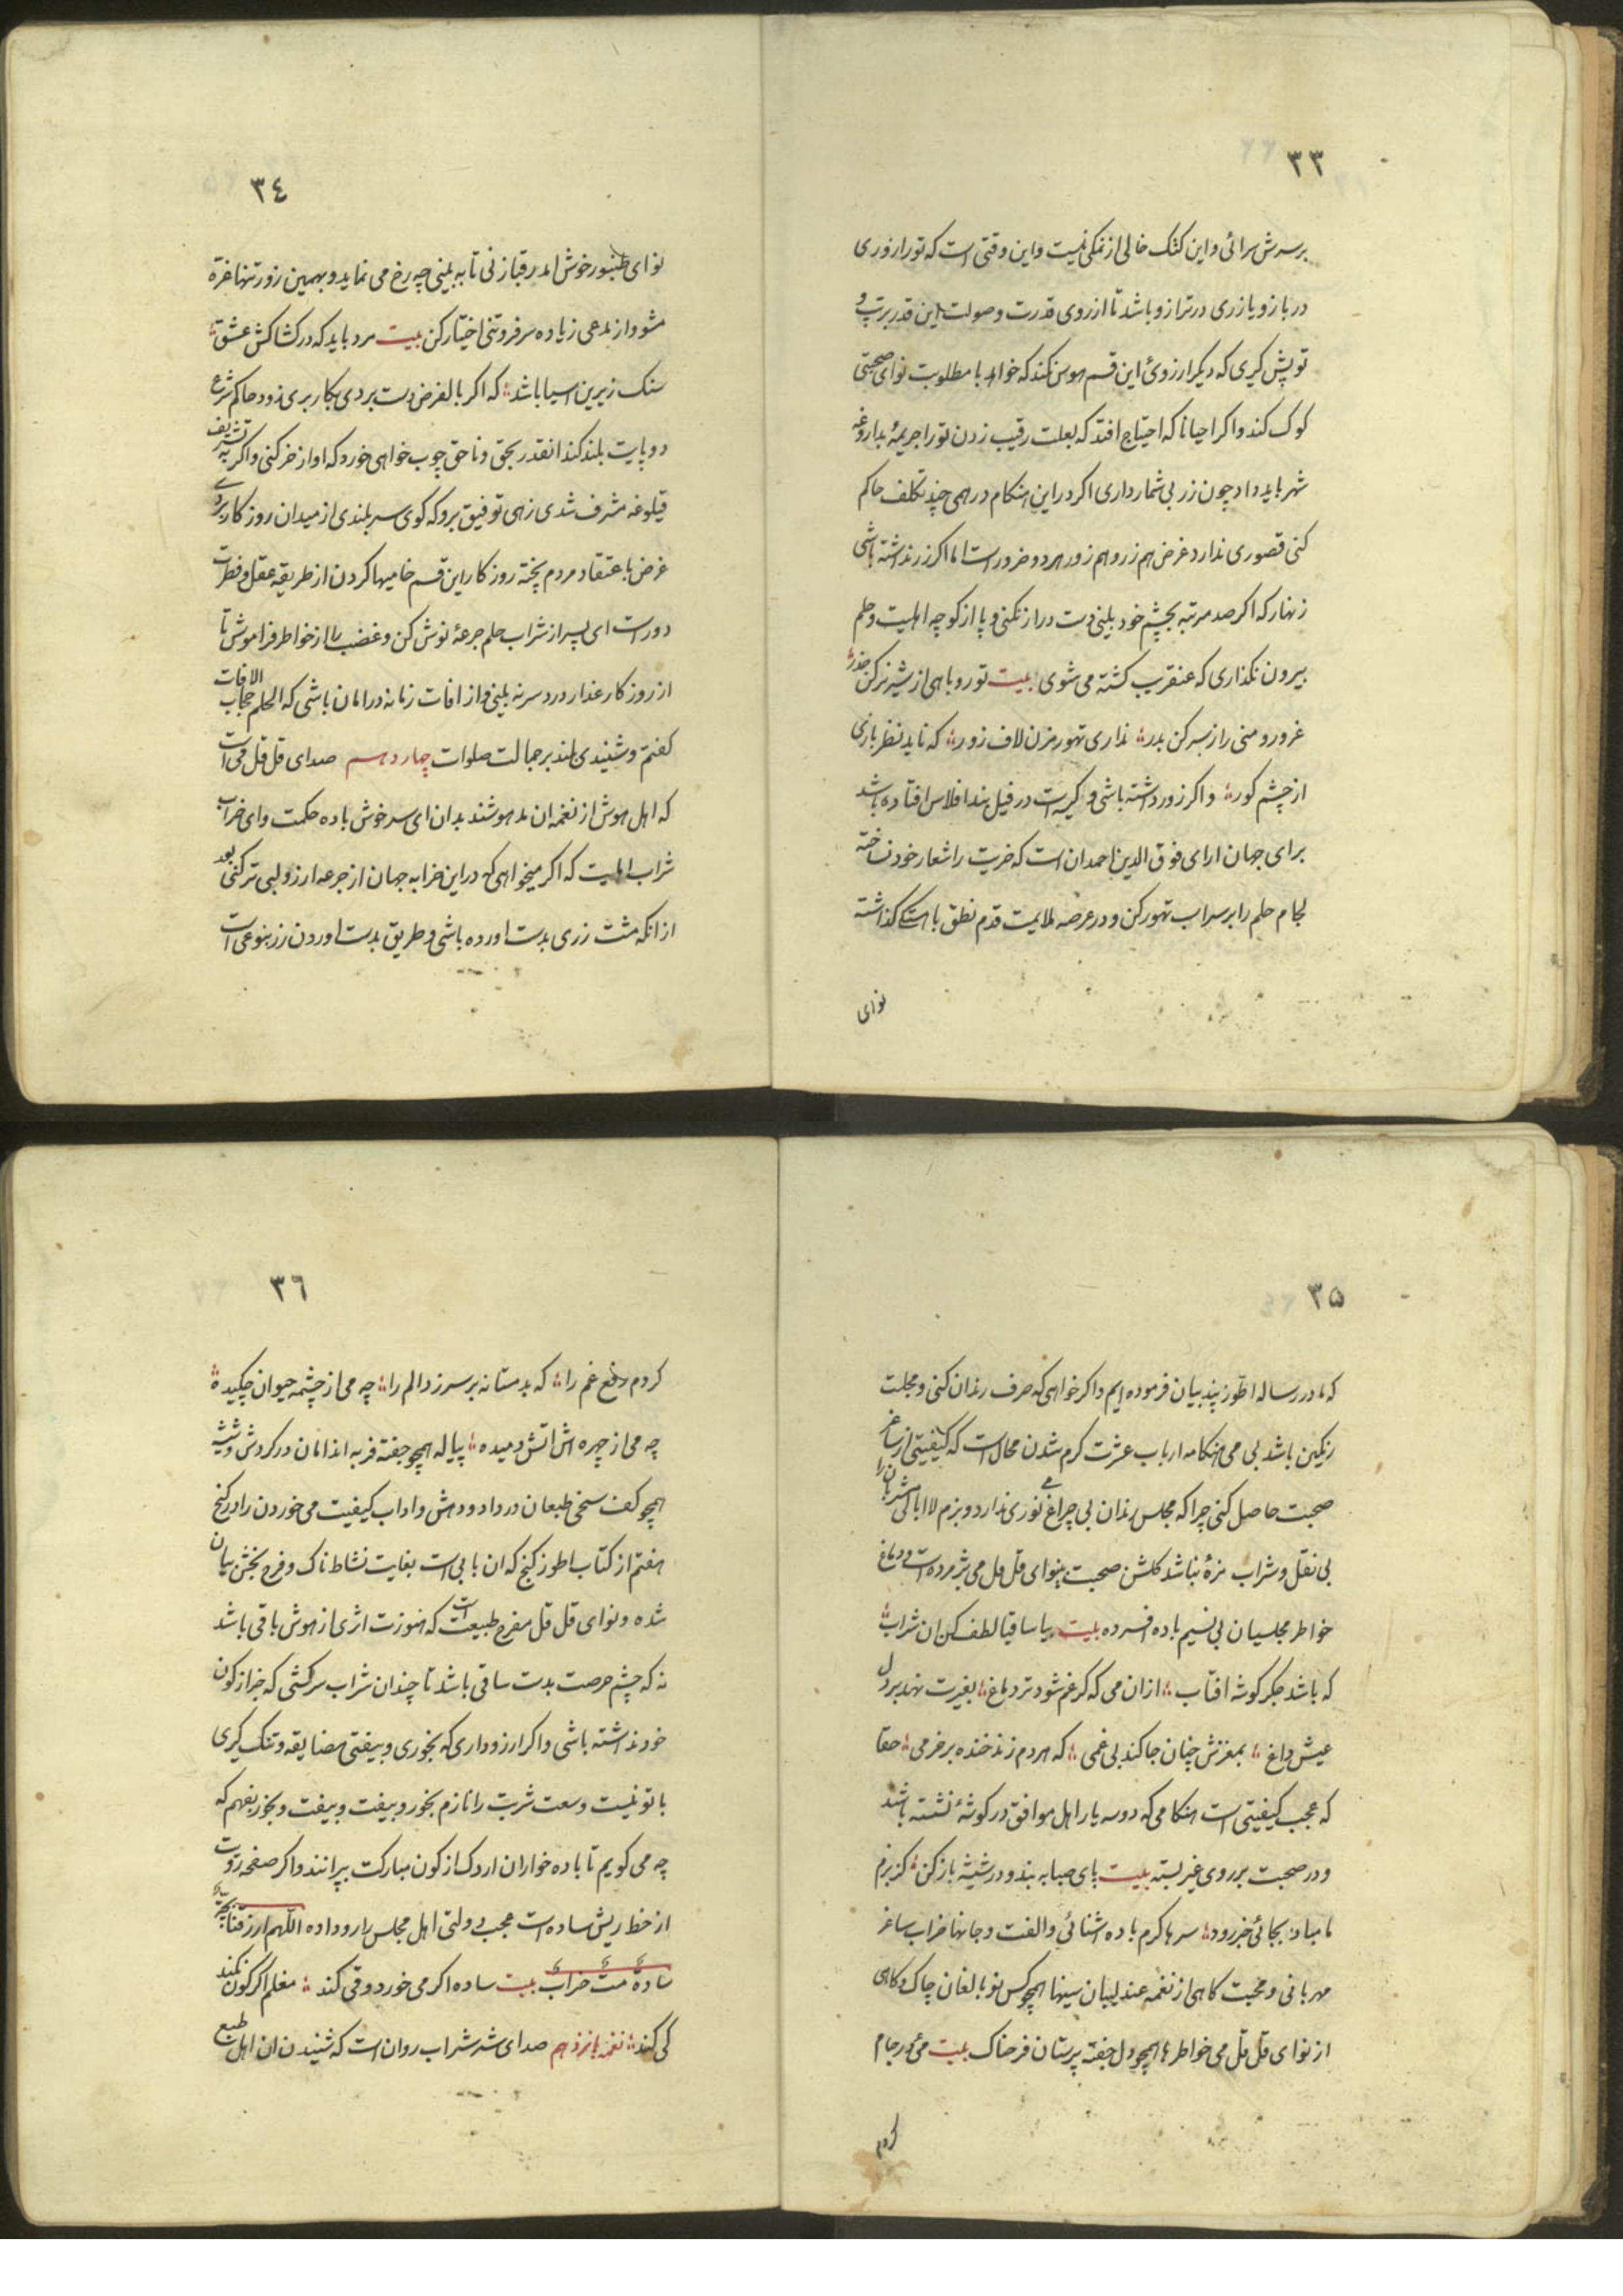 ٣٣
برسرش سرائی و این کتک خالی از نمکی نیست و این وقتی است که تو را زوری
در بازو یا زری در ترازو باشد تا از روی قدرت و صولت این قدر برتپ و
توپش کیری که دیکر ارزوی این قسم هوس نکند که خواهد با مطلوبت نوای صحبتی
کوک کند و اکر احیانا که احتیاج افتد که بعلت رقیب زدن تو را جریمهٔ بداروغه
شهر باید داد چون زر بی شمار داری اکر در این هنکام درهمی چند تکلف حاکم
کنی قصوری ندارد غرض هم زر و هم زور هر دو ضرور است اما اکر زر نداشته باشی
زنهار که اکر صد مرتبه بچشم خود بینی دست دراز نکنی و پا از کوچه اهلیت و حلم
بیرون نکذاری که عنقریب کشته می شوی بیت تو روباهی از شیر نر کن حذر
غرور و منی را ز سر کن بدر نداری تهور مزن لاف زور که ناید نظر بازی
از چشم کور و اکر زور داشته باشی و کیرت در فیل بند افلاس افتاده باشد
برای جهان ارای فوق الدین احمد ان است که خریت را شعار خود نساخته
لجام حلم را بر سر اسب تهور کن و در عرصه ملایمت قدم نطق باهستکی کذاشته
نوای
٣٤
نوای طنبور خوش امد رقبا زنی تا به بینی چه رخ می نماید و بهمین زور تنها غره
مشو و از مدعی زیاده سر فروتنی اختیار کن بیت مرد باید که در کشاکش عشق
سنک زیرین اسیا باشد که اکر بالفرض دست بردی بکار بری زود حاکم شرع
دو پایت بلند کند انقدر بحق و ناحق چوب خواهی خورد که اواز خر کنی و اکر به تشریف
قیلوغه مشرف شدی زهی توفیق برو که کوی سر بلندی از میدان روزکار بردی
غرض باعتقاد مردم پخته روزکار این قسم خامیها کردن از طریقه عقل و فطرت
دور است ای پسر از شراب حلم جرعهٔ نوش کن و غضب را از خواطر فراموش تا
از روزکار غدار دردسر نه بینی و از افات زمانه در امان باشی که الحلم حجاب الافات
کفتم و شنیدی بلند بر جمالت صلوات چهاردهم صدای قل قل می است
که اهل هوش از نغمه ان مدهوشند بدان ای سرخوش باده حکمت و ای خراب
شراب اهلیت که اکر میخواهی که در این خرابه جهان از جرعه ارزو لبی تر کنی بعد
از انکه مشت زری بدست اورده باشی و طریق بدست اوردن زر بنوعی است
٣۵
که ما در رساله اطوز پند بیان فرموده ایم و اکر خواهی که صرف رندان کنی و مجلست
رنکین باشد بی می هنکامه ارباب عشرت کرم شدن محال است که کیفیتی از ساغر
صحبت حاصل کنی چرا که مجلس رندان بی چراغ می نوری ندارد و بزم لا ابالی مشربان را
بی نقل و شراب مزهٔ نباشد کلشن صحبت بینوای قل قل می پژمرده است و دماغ
خواطر مجلسیان بی نسیم باده افسرده بیت بیا ساقیا لطف کن ان شراب
که باشد جکر کوشه افتاب از ان می که کر غم شود تر دماغ بغیرت نهد بر دل
عیش داغ بمغزش چنان جا کند بی غمی که هر دم زند خنده بر خرمی حقا
که عجب کیفیتی است هنکامی که دو سه یار اهل موافق در کوشهٔ نشسته باشد
و در صحبت بر روی غیر بسته بیت پای صبا به بند و در شیشه باز کن کز بزم
ما مباد بجائی خبر رود سرها کرم باده اشنائی و الفت و جانها خراب ساغر
مهربانی و محبت کاهی از نغمه عندلیبان سینها همچو کس نو بالغان چاک و کاهی
از نوای قل قل می خواطرها همچو دل جفته پرستان فرحناک بیت می در جام
کردم
٣٦
کردم دفع غم را که بدمستانه بر سر زد الم را چه می از چشمه حیوان چکیده
چه می از چهره اش اتش دمیده پیاله همچو جفته فربه اندامان در کردش و شیشه
همچو کف سخی طبعان در داد و دهش و اداب کیفیت می خوردن را در کنج
هفتم از کتاب اطوز کنج که ان بابی است بغایت نشاط ناک و فرح بخش بیان
شده و نوای قل قل مفرح طبیعت است که هنوزت اثری از هوش باقی باشد
نه که چشم حرصت بدست ساقی باشد تا چندان شراب سرکشی که خبر از کون
خود نداشته باشی و اکر ارزو داری که بخوری و بیفتی مضایقه و تنک کیری
با تو نیست وسعت شربت را نازم بخور و بیفت و بیفت و بخور بفهم که
چه می کویم تا باده خواران اردک از کون مبارکت بپرانند و اکر صفحه رویت
از خط ریش ساده است عجب دولتی اهل مجلس را رو داده اللهم ارزقنا بچه
ساده مست خراب بیت ساده اکر می خورد و قی کند مغلم اکر کون نکند
کی کند نغمه پانزدهم صدای شر شر شراب روان است که شنیدن ان اهل طبع